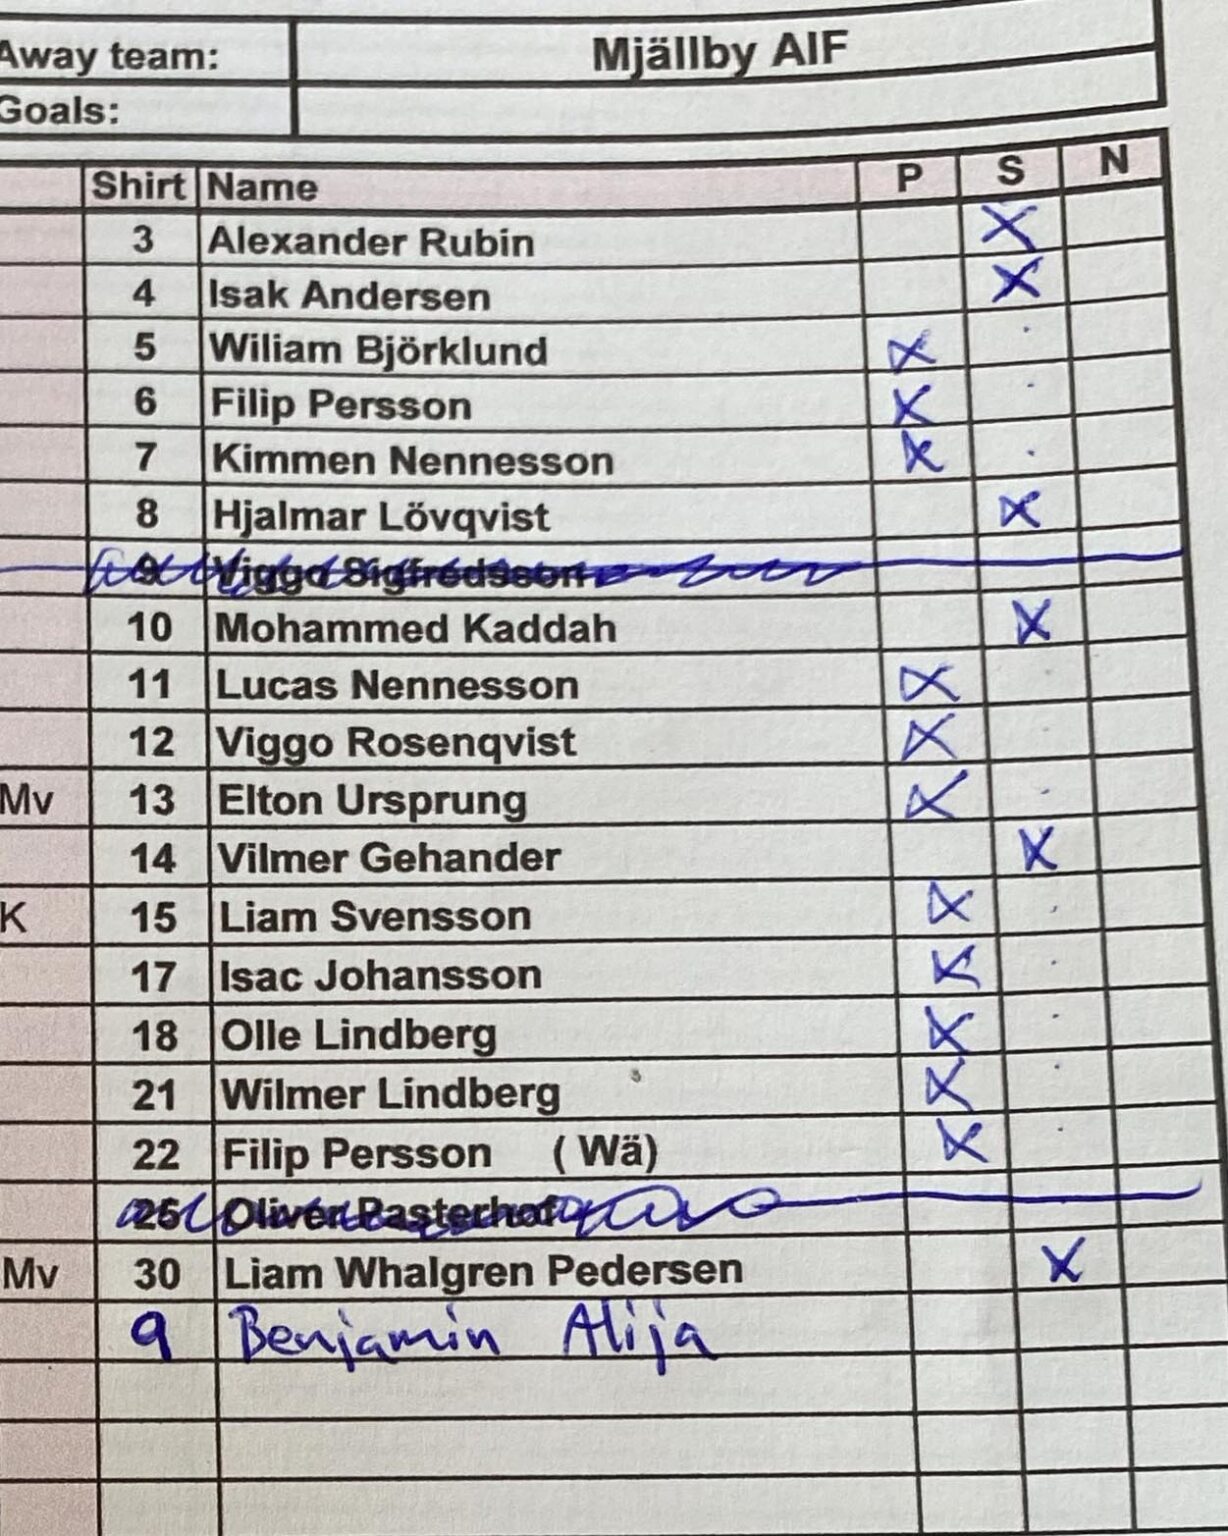 Away team: Mjällby AIF
Goals:
Shirt Name P S N
3 Alexander Rubin X
4 Isak Andersen X
5 Wiliam Björklund X
6 Filip Persson X
7 Kimmen Nennesson X
8 Hjalmar Lövqvist X
9 Viggo Sigfredsson
10 Mohammed Kaddah X
11 Lucas Nennesson X
12 Viggo Rosenqvist X
Mv 13 Elton Ursprung X
14 Vilmer Gehander X
K 15 Liam Svensson X
17 Isac Johansson X
18 Olle Lindberg X
21 Wilmer Lindberg X
22 Filip Persson ( Wä) X
25 Oliver Pasterhof
Mv 30 Liam Whalgren Pedersen X
9 Benjamin Alija